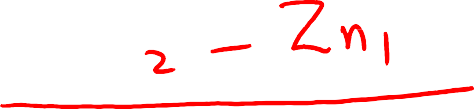 2 - Zn1